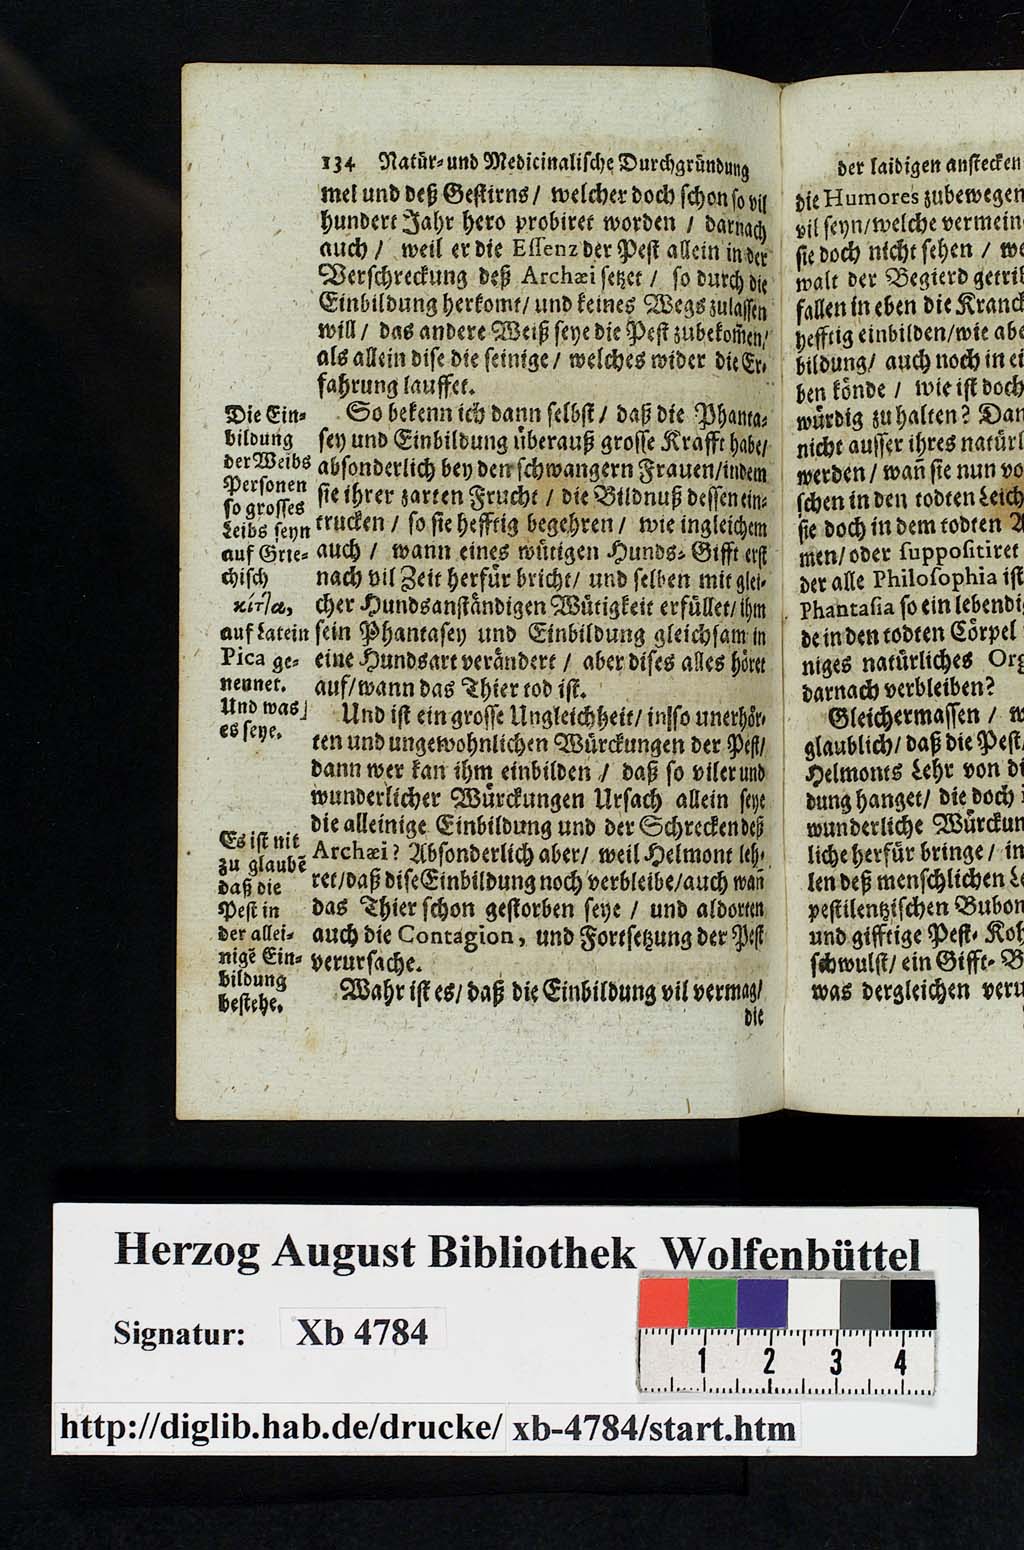 134 Natür- und Medicinalische Durchgründung
mel und deß Gestirns / welcher doch schon so vil
hundert Jahr hero probiret worden / darnach
auch / weil er die Essenz der Pest allein in der
Verschreckung deß Archæi setzet / so durch die
Einbildung herkomt / und keines Wegs zulassen
will / das andere Weiß seye die Pest zubekom̄en /
als allein dise die seinige / welches wider die Er-
fahrung lauffet.
So bekenn ich dann selbst / daß die Phanta-
sey und Einbildung überauß grosse Krafft habe /
absonderlich bey den schwangern Frauen / indem
sie ihrer zarten Frucht / die Bildnuß dessen ein-
trucken / so sie hefftig begehren / wie ingleichem
auch / wann eines wütigen Hunds-Gifft erst
nach vil Zeit herfür bricht / und selben mit glei-
cher Hundsanständigen Wütigkeit erfüllet / ihm
sein Phantasey und Einbildung gleichsam in
eine Hundsart verändert / aber dises alles höret
auf / wann das Thier tod ist.
Und ist ein grosse Ungleichheit / in so unerhör-
ten und ungewohnlichen Würckungen der Pest /
dann wer kan ihm einbilden / daß so viler und
wunderlicher Würckungen Ursach allein seye
die alleinige Einbildung und der Schrecken deß
Archæi? Absonderlich aber / weil Helmont leh-
ret / daß dise Einbildung noch verbleibe / auch wan̄
das Thier schon gestorben seye / und aldorten
auch die Contagion, und Fortsetzung der Pest
verursache.
Wahr ist es / daß die Einbildung vil vermag /
die
Die Ein-
bildung
der Weibs
Personen
so grosses
Leibs seyn
auf Grie-
chisch
κίτ]α,
auf Latein
Pica ge-
nennet.
Und was
es seye.
Es ist nit
zu glaubē
daß die
Pest in
der allei-
nigē Ein-
bildung
bestehe.
der laidigen anstecken
die Humores zubewegen
vil seyn / welche vermein
sie doch nicht sehen / we
walt der Begierd getri
fallen in eben die Kranck
hefftig einbilden / wie abe
bildung / auch noch in ei
ben könde / wie ist doch
würdig zu halten? Dan
nicht ausser ihres natürl
werden / wan̄ sie nun vo
schen in den todten Leich
sie doch in dem todten
men / oder suppositiret
der alle Philosophia ist
Phantasia so ein lebendi
de in den todten Cörpel
niges natürliches Org
darnach verbleiben?
Gleichermassen / w
glaublich / daß die Pest /
Helmonts Lehr von di
dung hanget / die doch
wunderliche Würckun
liche herfür bringe / in
len deß menschlichen Le
pestilentzischen Bubon
und gifftige Pest-Koh
schwulst / ein Gifft-B
was dergleichen veru
Herzog August Bibliothek Wolfenbüttel
Signatur: Xb 4784
1 2 3 4
http://diglib.hab.de/drucke/ xb-4784/start.htm